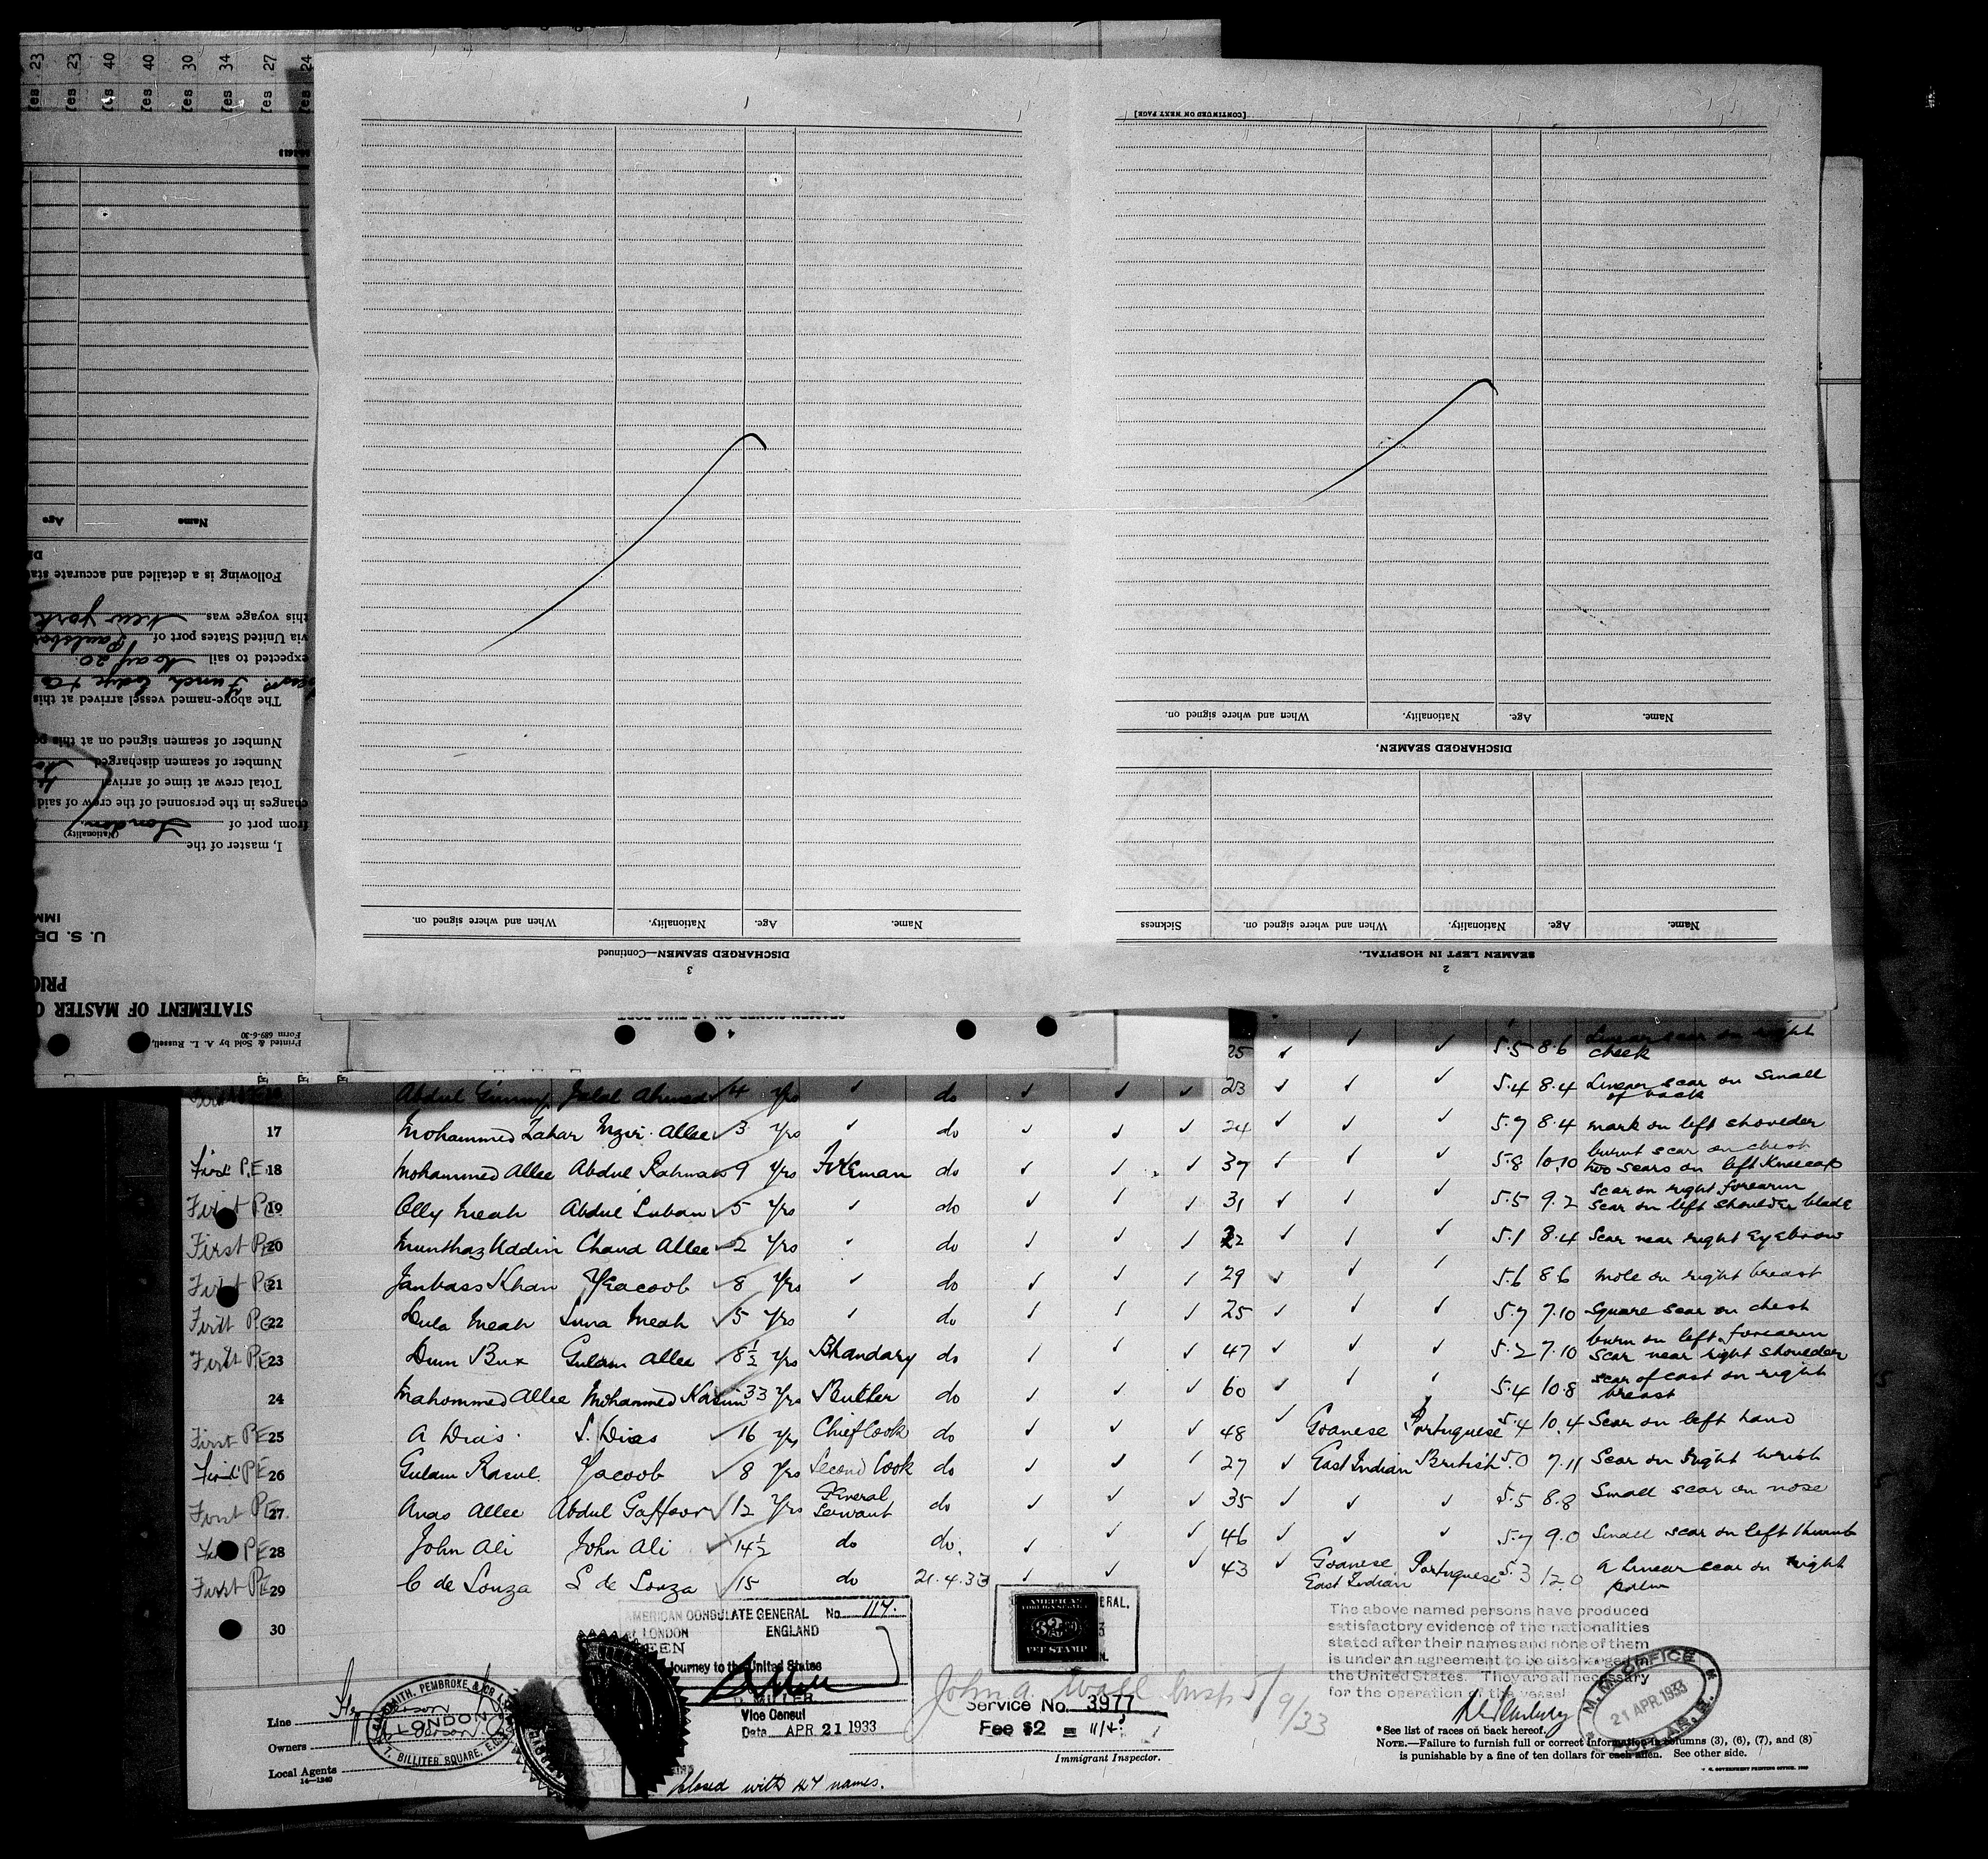 Yes 23
Yes 23
Yes 40
Yes 40
Yes 30
Yes 34
Yes 27
Yes 24
Name
Age
Following is a detailed and accurate
this voyage was New York
via United States port of
expected to sail May 20
The above-named vessel arrived at this
Number of seamen signed on at this
Number of seamen discharged
Total crew at time of arrival
changes in the personnel of the crew of said
from port of London
(Nationality)
I, master of the
U. S. DE
STATEMENT OF MASTER
PRIO
Form 689-6-30
Printed & Sold by A. L. Russell,
3
DISCHARGED SEAMEN—Continued
Name. Age. Nationality. When and where signed on.
2
SEAMEN LEFT IN HOSPITAL.
Name. Age. Nationality. When and where signed on. Sickness
DISCHARGED SEAMEN.
Name. Age. Nationality. When and where signed on.
[CONTINUED ON NEXT PAGE]
4
25 ✓ ✓ ✓ 5.5 8.6 Linear scar on right cheek
Jalal Ahmed ✓ 4 Yrs ✓ do ✓ ✓ ✓ 23 ✓ ✓ ✓ 5.4 8.4 Linear scar on small of back
17 Mohammed Zahar Allee ✓ 3 Yrs ✓ do ✓ ✓ ✓ 24 ✓ ✓ ✓ 5.7 8.4 mark on left shoulder
First P.E. 18 Mohammed Allee Abdul Rahman 9 Yrs Fireman do ✓ ✓ ✓ 37 ✓ ✓ ✓ 5.8 10.10 burnt scar on chest two scars on left Kneecap
First PE 19 Olly Meah Abdul Luban ✓ 5 Yrs ✓ do ✓ ✓ ✓ 31 ✓ ✓ ✓ 5.5 9.2 scar on right forearm scar on left shoulder blade
First PE 20 Munthaz Uddin Chand Allee 2 Yrs do ✓ ✓ ✓ 22 ✓ ✓ ✓ 5.1 8.4 Scar near right Eyebrow
First PE 21 Janbass Khan Yeacoob ✓ 8 Yrs ✓ do ✓ ✓ ✓ 29 ✓ ✓ ✓ 5.6 8.6 mole on right breast
First PE 22 Dula Meah Luna Meah ✓ 5 Yrs ✓ do ✓ ✓ ✓ 25 ✓ ✓ ✓ 5.7 7.10 Square scar on chest
First PE 23 Bux Gulam Allee ✓ 8½ Yrs Bhandary do ✓ ✓ ✓ 47 ✓ ✓ ✓ 5.2 7.10 burn on left forearm scar near right shoulder
24 Mahommed Allee Mohammed Kasim 33 Yrs Butler do ✓ ✓ ✓ 60 ✓ ✓ ✓ 5.4 10.8 scar of cast on right breast
First PE 25 A Dias. S. Dias ✓ 16 Yrs Chief Cook do ✓ ✓ ✓ 48 ✓ Goanese Portuguese 5.4 10.4 Scar on left hand
First PE 26 Gulam Rasul Yacoob ✓ 8 Yrs Second Cook do ✓ ✓ ✓ 27 ✓ East Indian British 5.0 7.11 Scar on right wrist
First PE 27. Anas Allee Abdul Gaffoor ✓ 12 Yrs General Servant do ✓ ✓ ✓ 35 ✓ ✓ ✓ 5.5 8.8 Small scar on nose
PE 28 John Ali John Ali ✓ 14½ do do. ✓ ✓ ✓ 46 ✓ ✓ ✓ 5.7 9.0 Small scar on left thumb
First PE 29 C de Souza S de Souza ✓ 15 do 21.4.33 ✓ ✓ ✓ 43 ✓ Goanese East Indian Portuguese 5.3 12.0 A linear scar on right palm
30
AMERICAN CONSULATE GENERAL No. 117.
LONDON ENGLAND
SEEN
Journey to the United States
D. MILLER
Vice Consul
Date APR 21 1933
closed with 47 names.
AMERICAN
FEE STAMP
John A. Insp 5/9/33
Service No. 3977
Fee $2 =
Immigrant Inspector.
The above named persons have produced
satisfactory evidence of the nationalities
stated after their names and none of them
is under an agreement to be discharged in
the United States. They are all necessary
for the operation of the vessel
M. M. OFFICE
21 APR. 1933
POPLAR, E.
*See list of races on back hereof.
NOTE.—Failure to furnish full or correct information in columns (3), (6), (7), and (8)
is punishable by a fine of ten dollars for each alien. See other side.
U. S. GOVERNMENT PRINTING OFFICE
Line
Owners
Local Agents
14—1240
PEMBROKE, & CO
LONDON
7, BILLITER SQUARE, E.C.